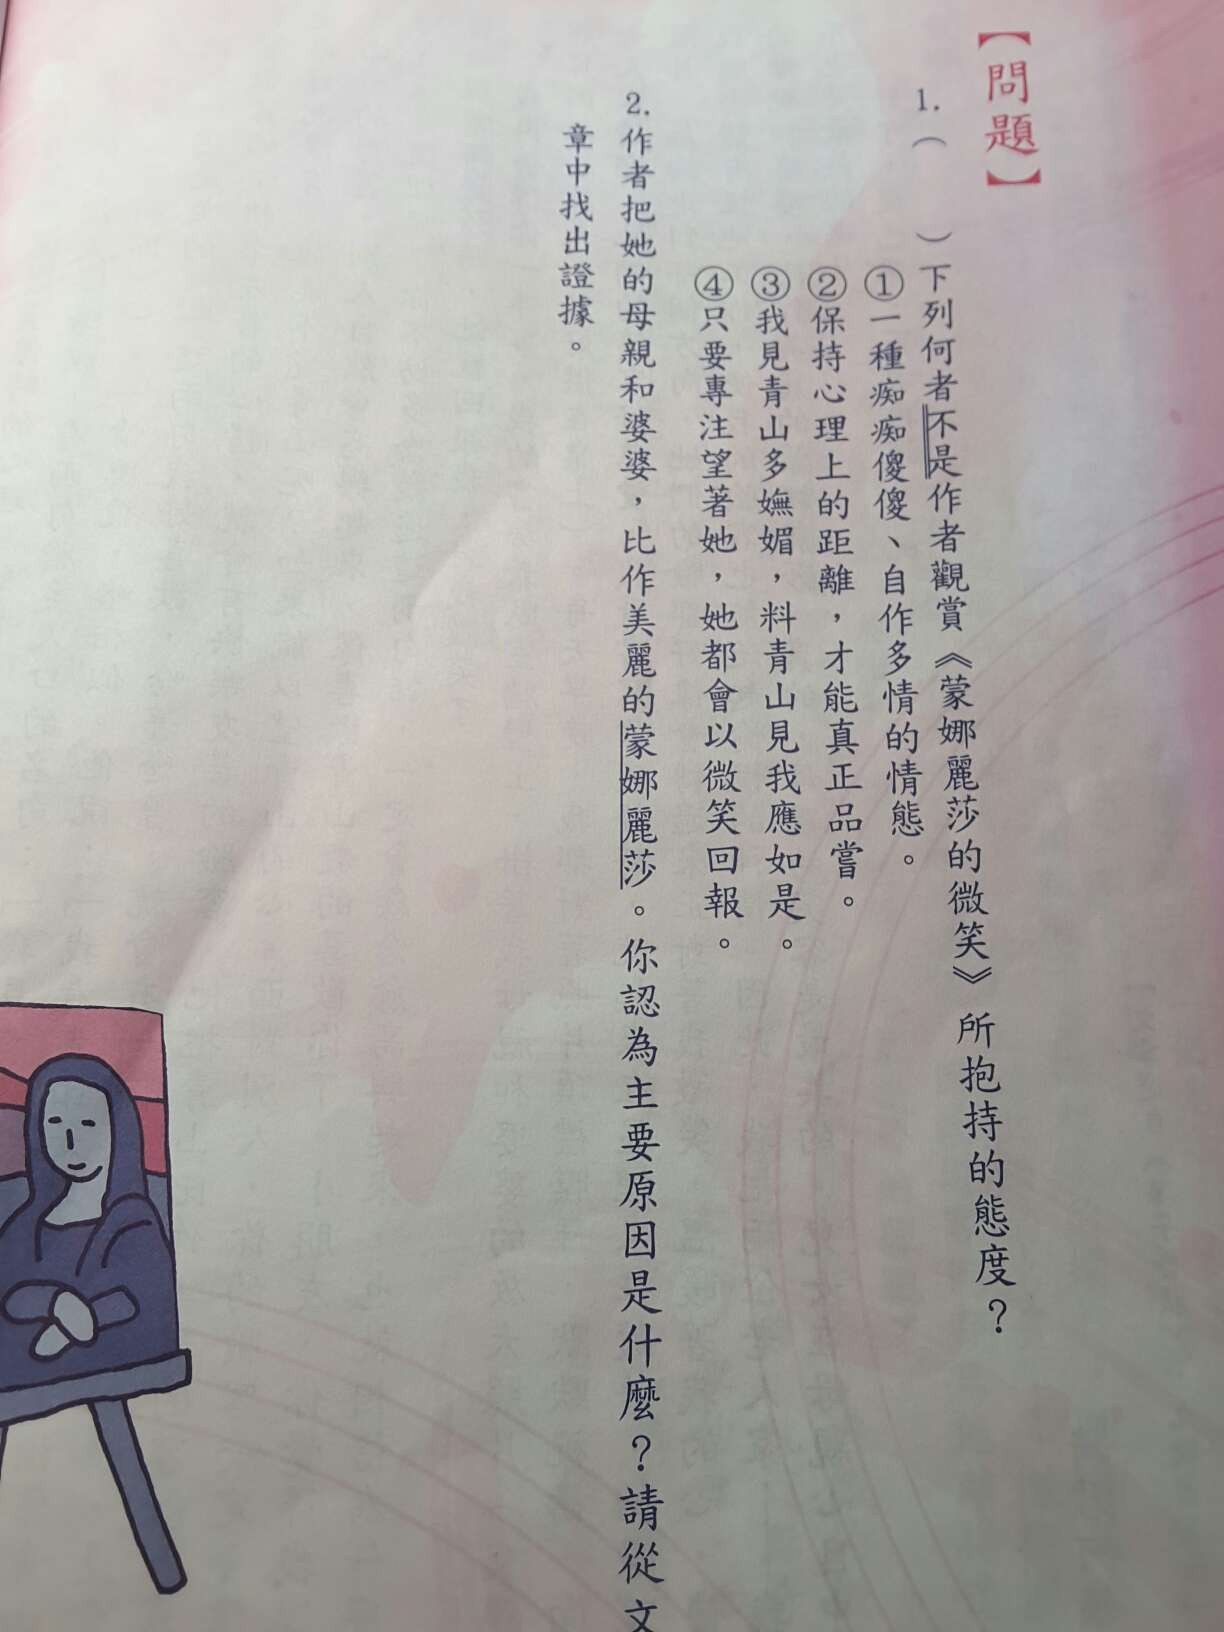 【問題】
1.（　）下列何者不是作者觀賞《蒙娜麗莎的微笑》所抱持的態度？
①一種痴痴傻傻、自作多情的情態。
②保持心理上的距離，才能真正品嘗。
③我見青山多嫵媚，料青山見我應如是。
④只要專注望著她，她都會以微笑回報。
2.作者把她的母親和婆婆，比作美麗的蒙娜麗莎。你認為主要原因是什麼？請從文
章中找出證據。